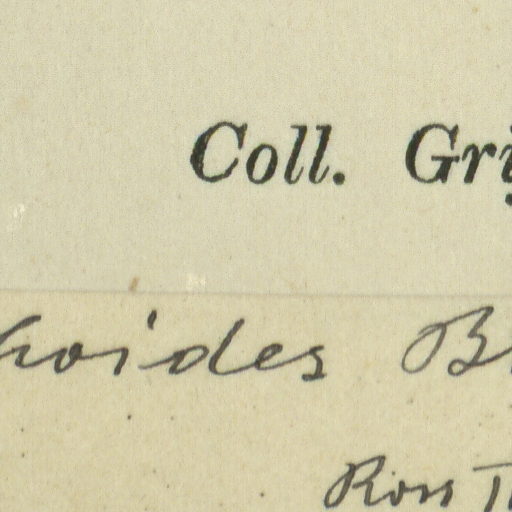 Coll. Gri
hoides B
Ross T